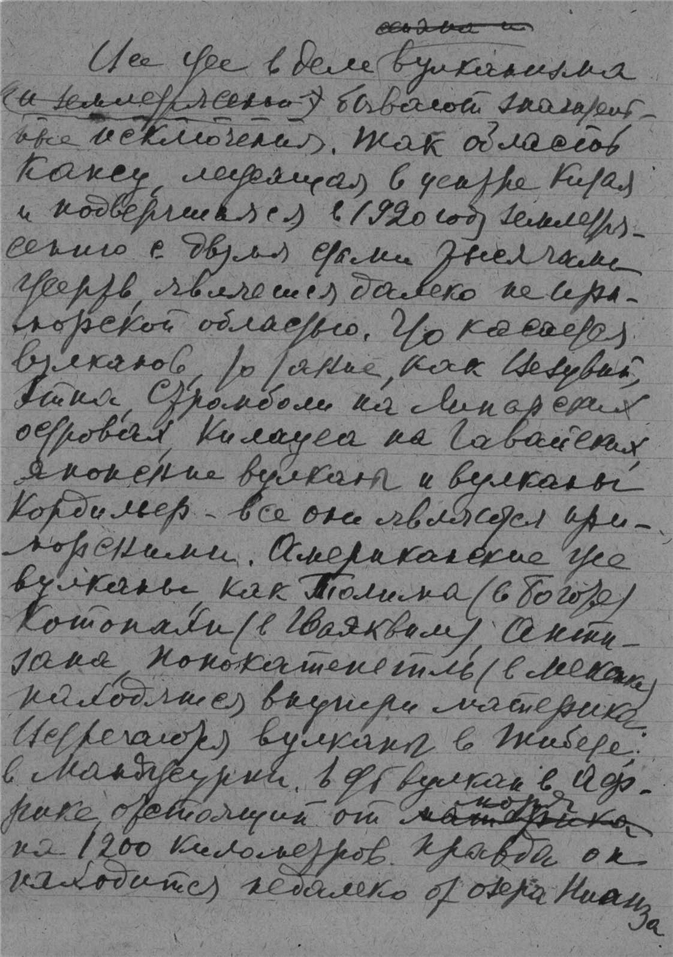 Но уже в деле вулканизма
(и землетрясений) бывают значит-
ные исключения. Так область
Кансу, лежащая в центре Китая
и подвергшаяся в 1920 году землетря-
сению с двумя стами тысячами
жертв, является далеко не при-
морской областью. Что касается
вулканов, то такие, как Везувий,
Этна, Стромболи на Липарских
островах, Килауеа на Гавайских,
японские вулканы и вулканы
Кордильер - все они являются при-
морскими. Американские же
вулканы как Толима (в Боготе)
Котопахи (в Гваяквиле), Анти-
зана, Попокатепетль (в Мексике)
находятся внутри материка.
Встречаются вулканы в Тибете,
в Манджурии. вулкан в Аф-
рике, отстоящий от моря материка
на 1200 километров. Правда он
находится недалеко от озера Нианза